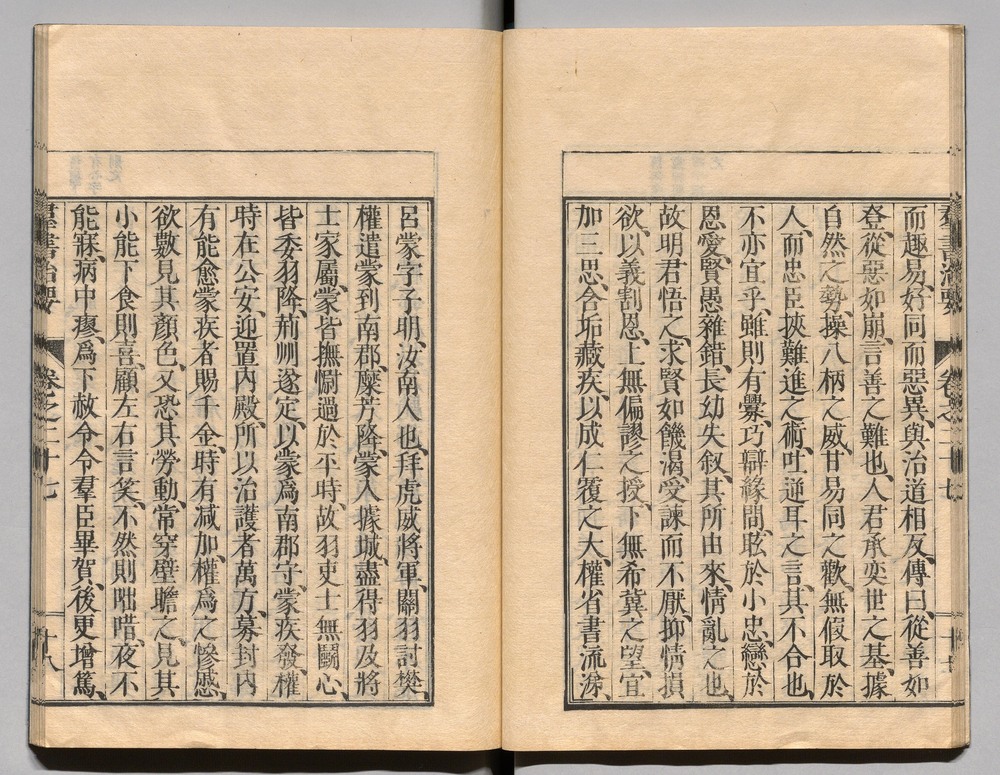 羣書治要 卷之二十七
而趣易、好同而惡異、與治道相反、傳曰、從善如
登、從惡如崩、言善之難也、人君承奕世之基、據
自然之勢、操八柄之威、甘易同之歡、無假取於
人、而忠臣挾難進之術、吐逆耳之言、其不合也、
不亦宜乎、雖則有釁、巧辯緣間、眩於小忠、戀於
恩愛、賢愚雜錯、長幼失叙、其所由來、情亂之也、
故明君悟之、求賢如饑渴、受諫而不厭、抑情損
欲、以義割恩、上無偏謬之授、下無希冀之望、宜
加三思、含垢藏疾、以成仁覆之大、權省書流涕、
呂蒙字子明、汝南人也、拜虎威將軍、關羽討樊、
權遣蒙到南郡、糜芳降、蒙入據城、盡得羽及將
士家屬、蒙皆撫慰過於平時、故羽吏士無鬪心、
皆委羽降、荊州遂定、以蒙爲南郡守、蒙疾發、權
時在公安、迎置內殿、所以治護者萬方、募封內
有能愈蒙疾者、賜千金、時有减加、權爲之慘慼、
欲數見其顏色、又恐其勞動、常穿壁瞻之、見其
小能下食則喜、顧左右言笑、不然則咄唶、夜不
能寐、病中瘳、爲下赦令、令羣臣畢賀、後更增篤、
羣書治要 卷之二十七 十八